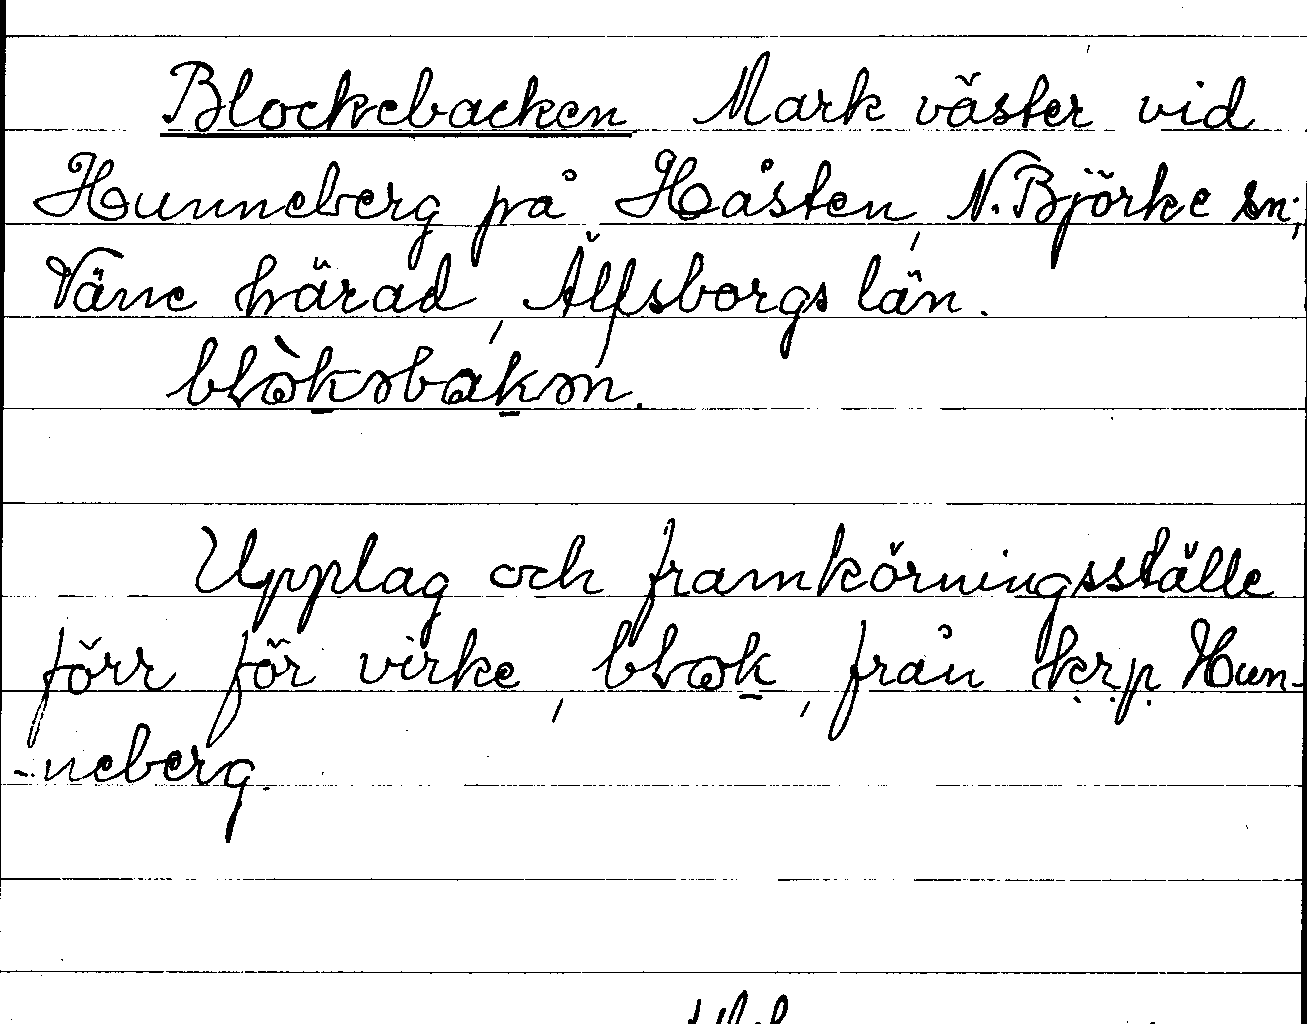 Blockebacken Mark väster vid
Hunneberg på Håsten, N. Björke sn;
Väne härad, Älfsborgs län.
blòkəbakən.
Upplag och framkörningsställe
förr för virke, blɷk, från krp Hun-
-neberg.